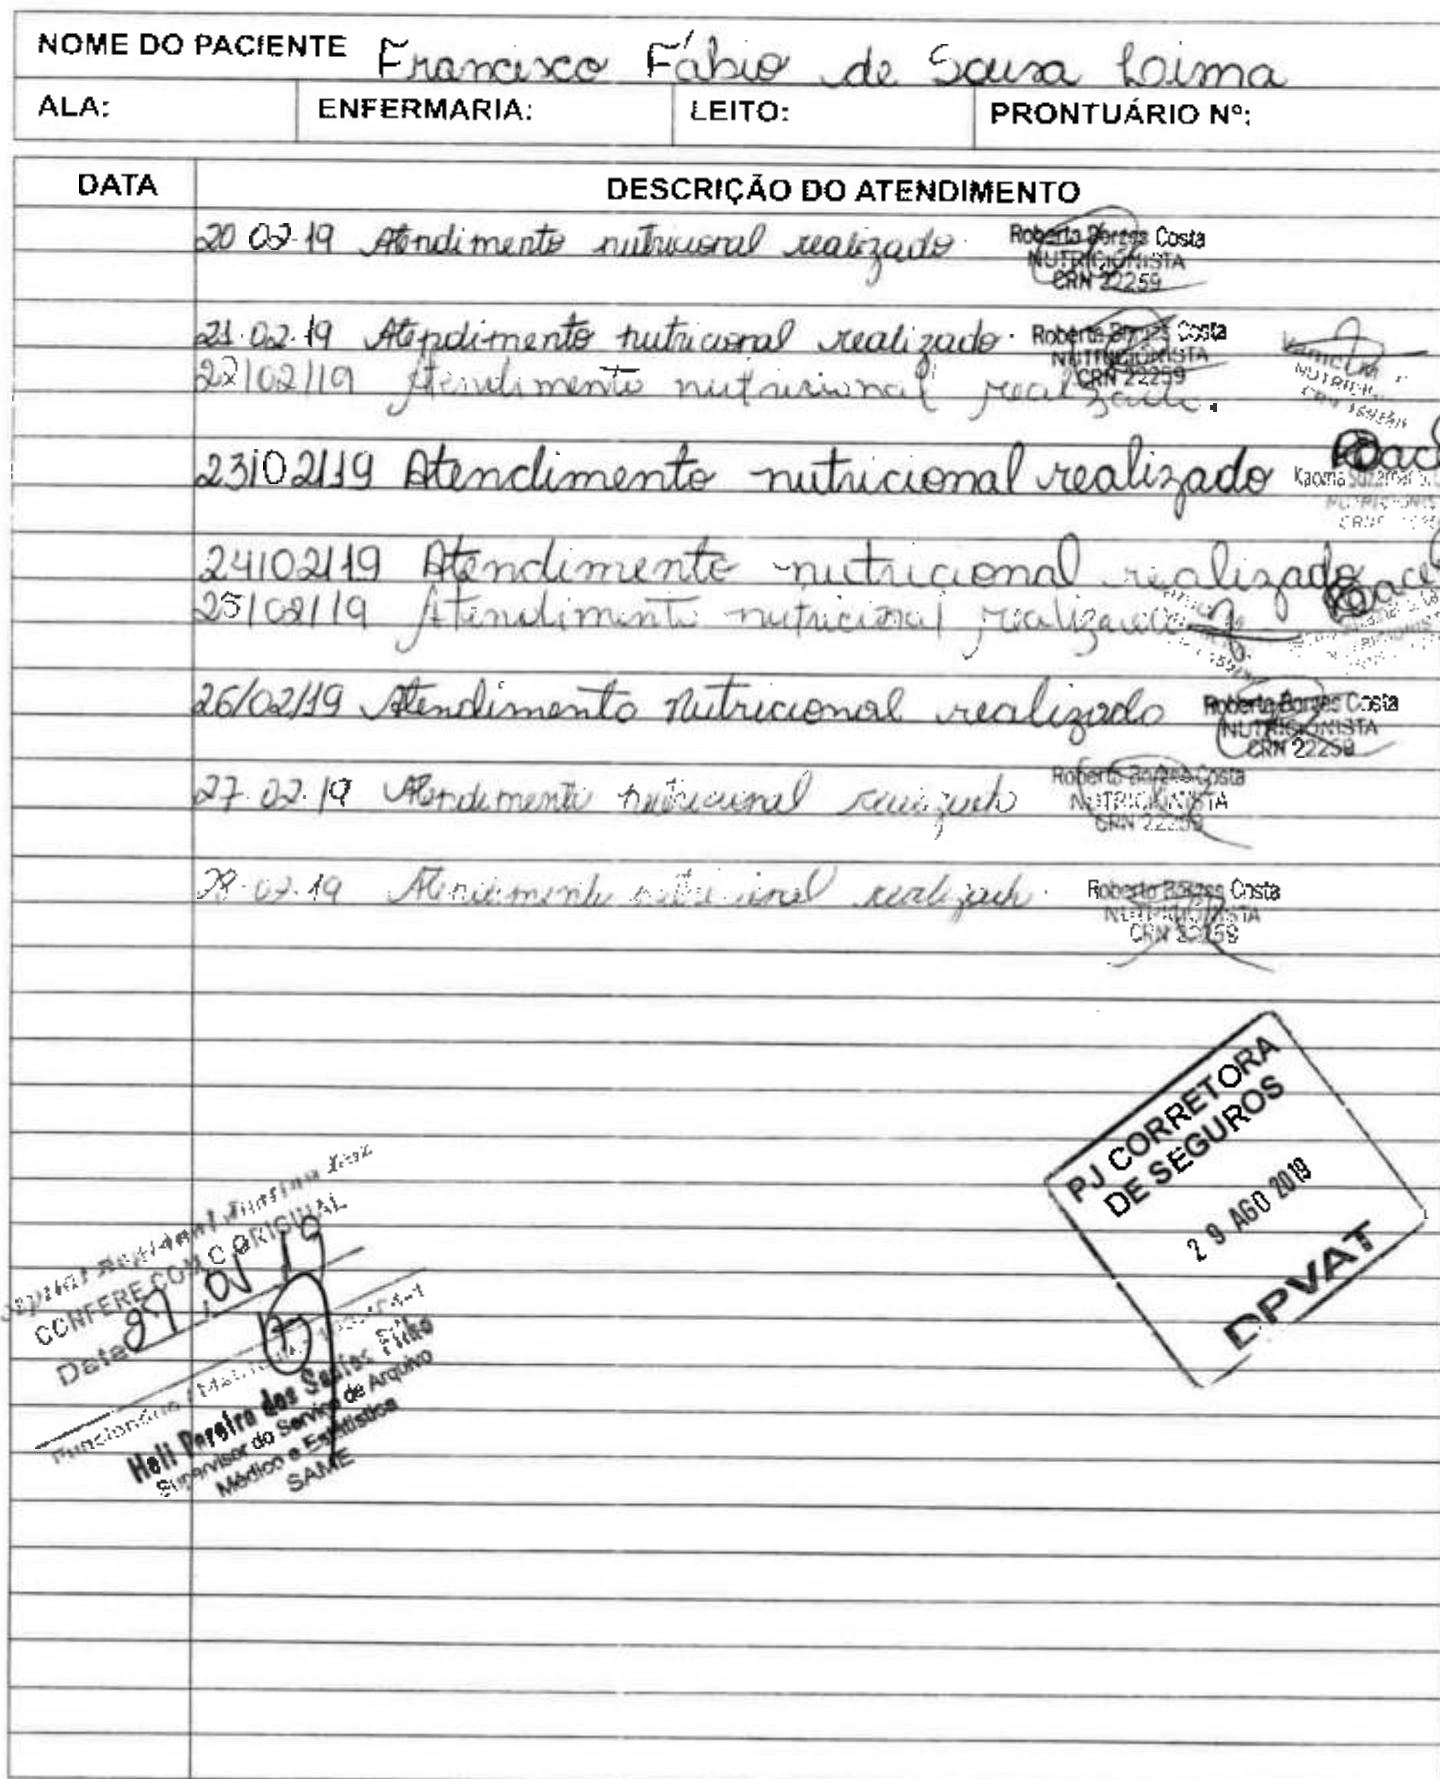 NOME DO PACIENTE Francisco Fábio de Sousa Lima
ALA: ENFERMARIA: LEITO: PRONTUÁRIO Nº:
DATA DESCRIÇÃO DO ATENDIMENTO
20.02.19 Atendimento nutricional realizado. Roberta Borges Costa
NUTRICIONISTA
CRN 22259
21.02.19 Atendimento nutricional realizado. Roberta Borges Costa
NUTRICIONISTA
CRN 22259
22/02/19 Atendimento nutricional realizado.
NUTRICI
23/02/19 Atendimento nutricional realizado
24/02/19 Atendimento nutricional realizado
25/02/19 Atendimento nutricional realizado
26/02/19 Atendimento Nutricional realizado Roberta Borges Costa
NUTRICIONISTA
CRN 22259
27.02.19 Atendimento nutricional realizado Roberta Borges Costa
NUTRICIONISTA
CRN 22259
28.02.19 Atendimento nutricional realizado. Roberta Borges Costa
NUTRICIONISTA
CRN 22259
PJ CORRETORA
DE SEGUROS
29 AGO 2019
DPVAT
Hospital Regional Justino Luz
CONFERE COM O ORIGINAL
Data
Funcionário / Matrícula
Heli Pereira dos Santos Filho
Supervisor do Serviço de Arquivo
Médico e Estatística
SAME